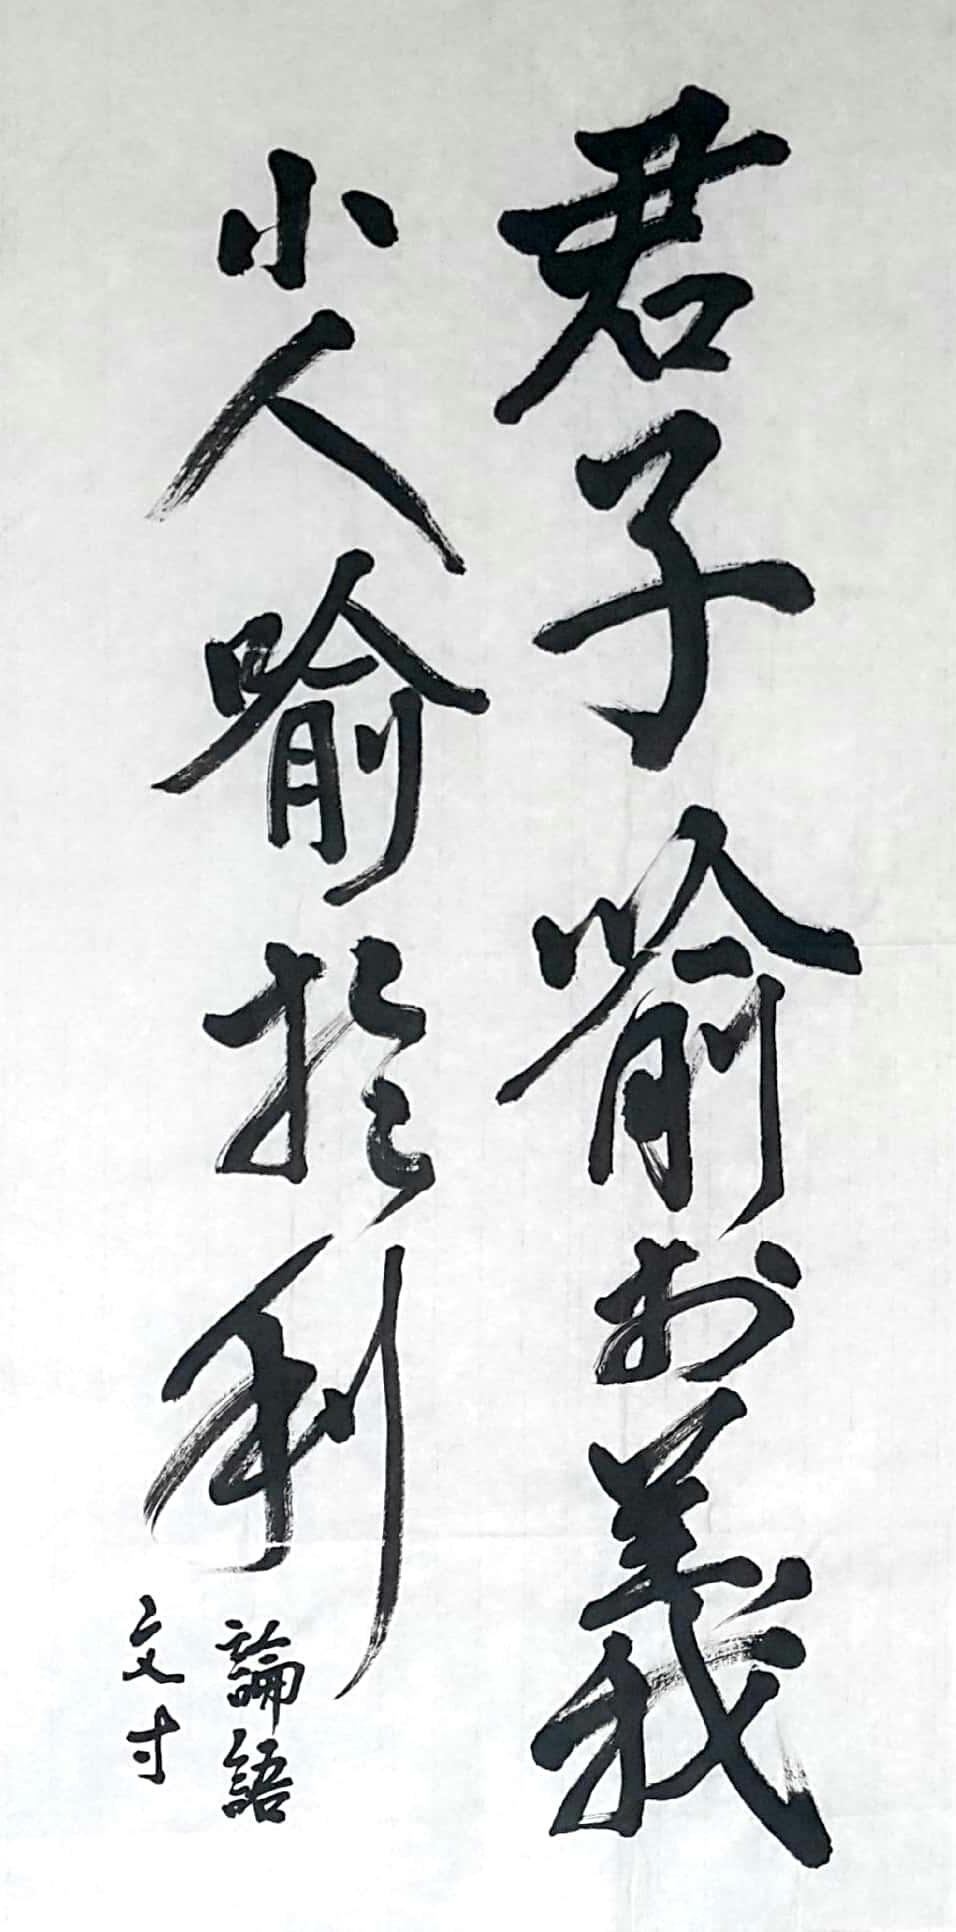 君子喻於義
小人喻於利
論語
文寸